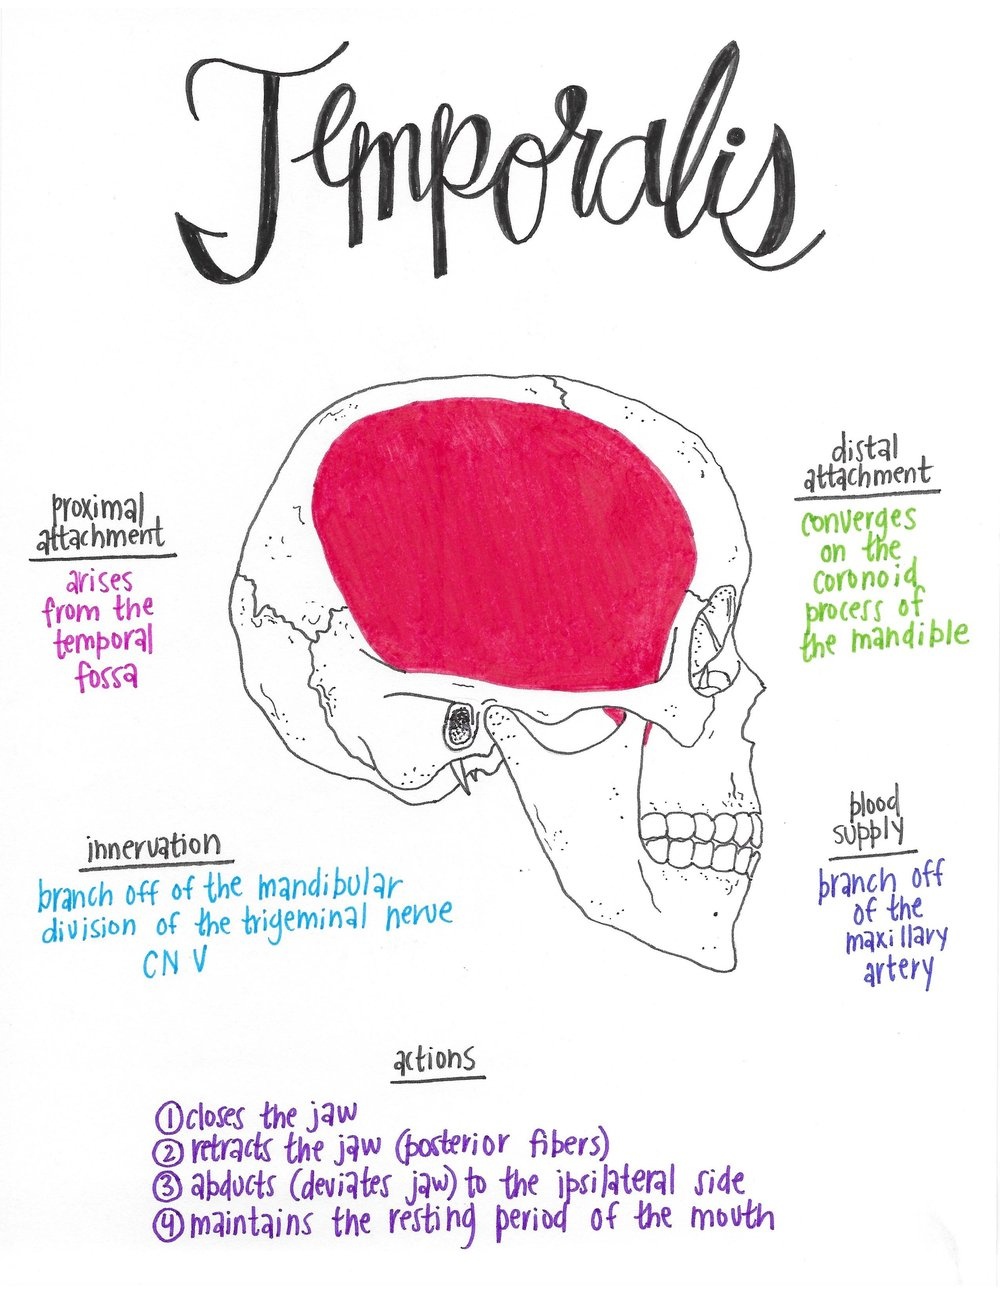 Temporalis
proximal
attachment
arises
from the
temporal
fossa
distal
attachment
converges
on the
coronoid
process of
the mandible
innervation
branch off of the mandibular
division of the trigeminal nerve
CN V
blood
supply
branch off
of the
maxillary
artery
actions
① closes the jaw
② retracts the jaw (posterior fibers)
③ abducts (deviates jaw) to the ipsilateral side
④ maintains the resting period of the mouth